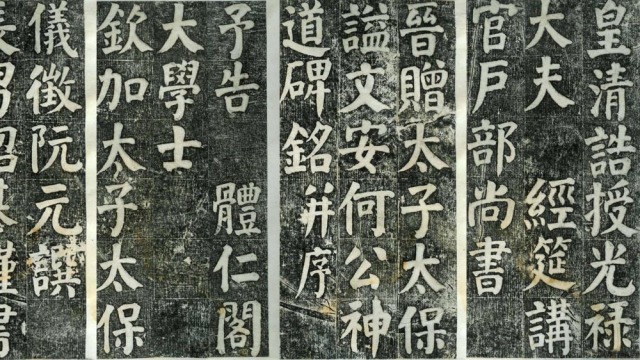 皇清誥授光祿
大夫 經筵講
官戶部尚書
晉贈太子太保
謚文安何公神
道碑銘并序
予告 體仁閣
大學士
欽加太子太保
儀徵阮元譔
長男紹基謹書